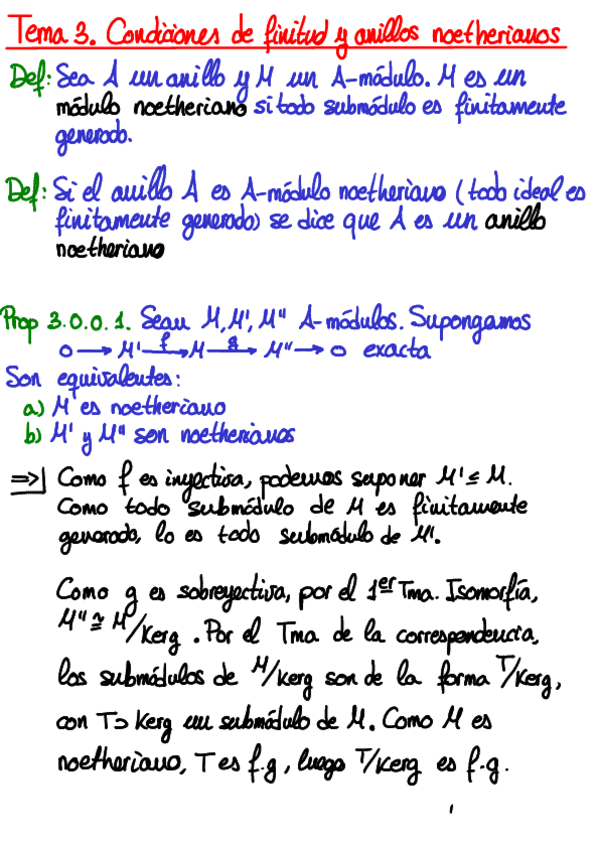 Tema 3. Condiciones de finitud y anillos noetherianos
Def: Sea A un anillo y M un A-módulo. M es un
módulo noetheriano si todo submódulo es finitamente
generado.
Def: Si el anillo A es A-módulo noetheriano (todo ideal es
finitamente generado) se dice que A es un anillo
noetheriano
Prop 3.0.0.1. Sean M, M', M" A-módulos. Supongamos
0 → M' →f M →g M" → 0 exacta
Son equivalentes:
a) M es noetheriano
b) M' y M" son noetherianos
⇒| Como f es inyectiva, podemos suponer M' ≤ M.
Como todo submódulo de M es finitamente
generado, lo es todo submódulo de M'.
Como g es sobreyectiva, por el 1er Tma. Isomorfía,
M" ≅ M/Kerg . Por el Tma de la correspondencia,
los submódulos de M/Kerg son de la forma T/Kerg,
con T⊃Kerg un submódulo de M. Como M es
noetheriano, T es f.g, luego T/Kerg es f.g.